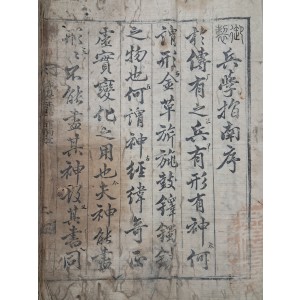 御製
兵學指南序
於傳有之兵有形有神何
謂形金革旂旐鼓鐸鐲鐃
之物也何謂神經緯奇正
虛實變化之用也夫神能盡
形〻不能盡其神故其書同